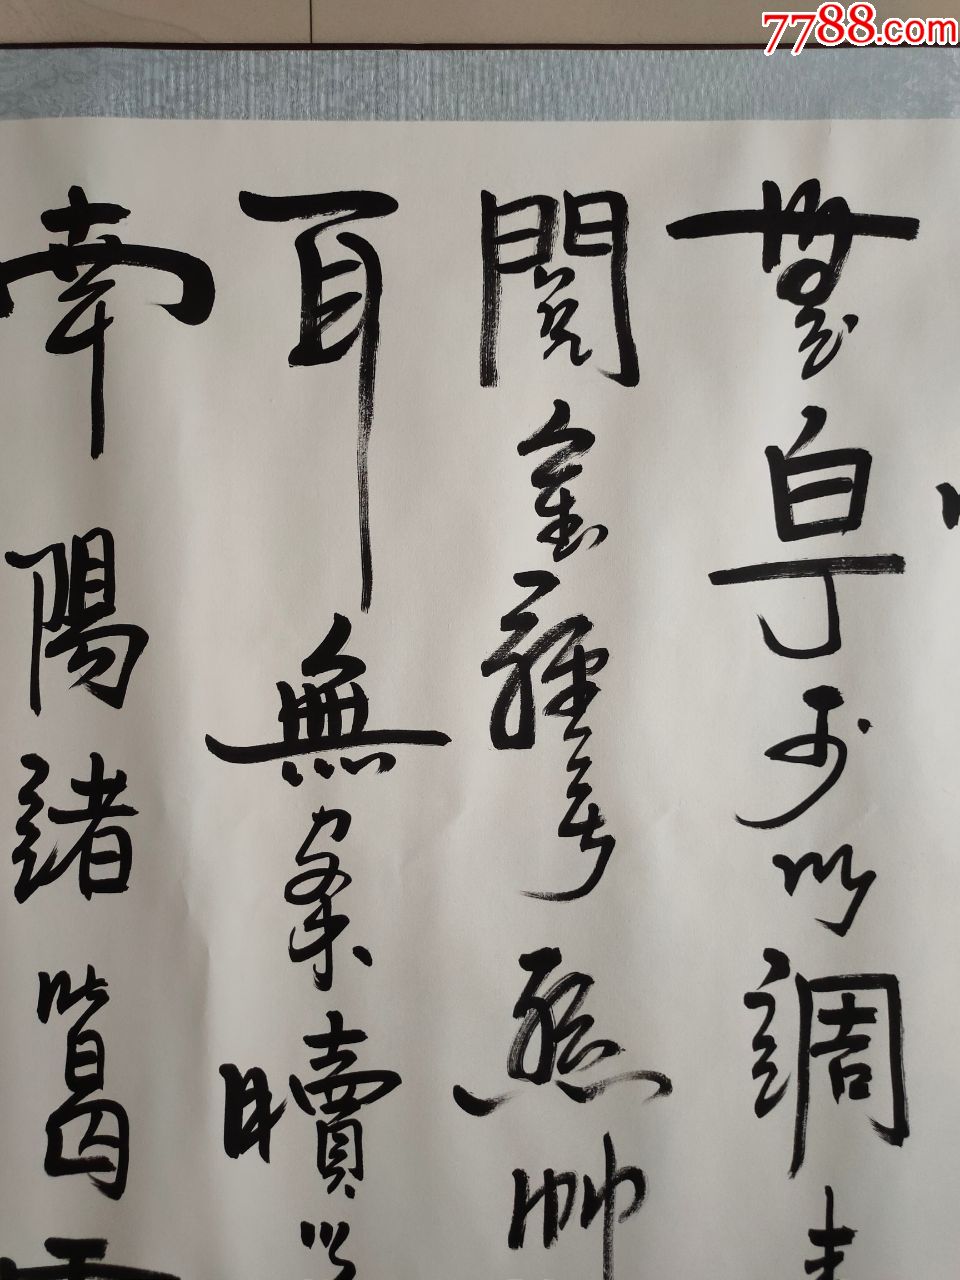 7788.com
無白丁可以調
閱金經無絲竹
耳無案牘
南陽諸葛